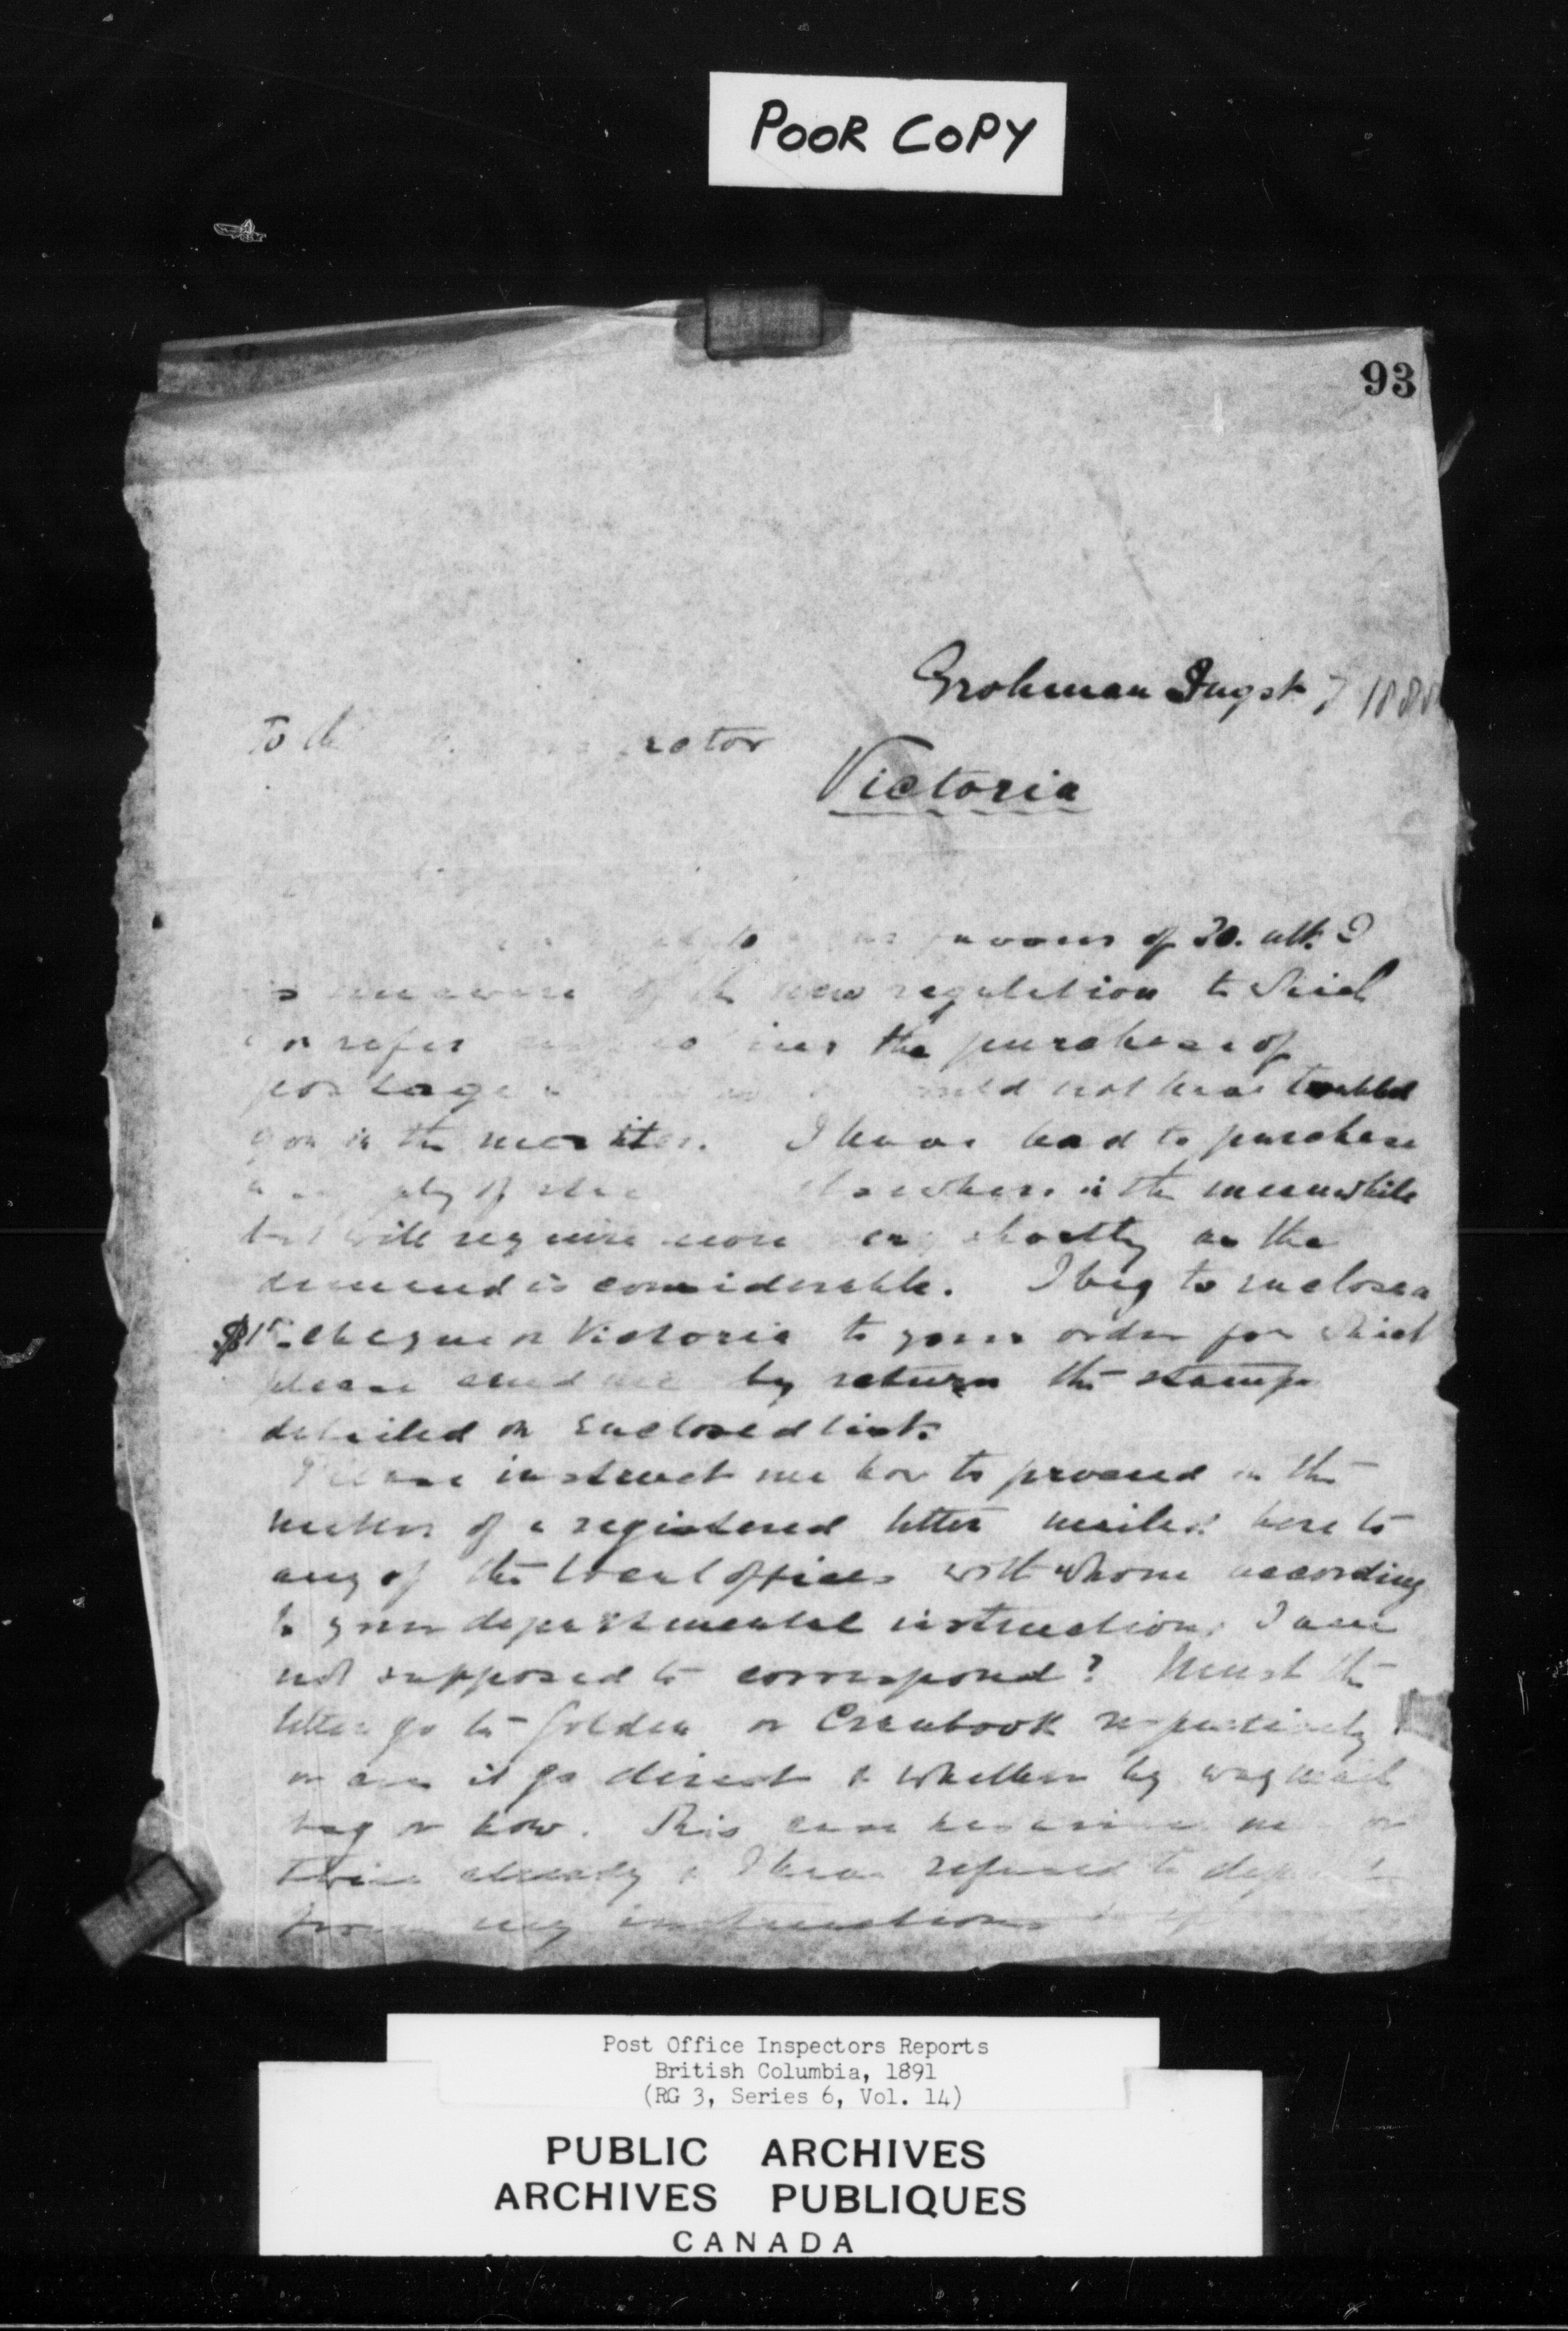 POOR COPY
93
Grohman Augst 7 188
To the
Victoria
of 30. ult. I
unaware of the new regulation to which
refer the purchase of
postage would not have troubled
you in the matter. I have had to purchase
of elsewhere in the meanwhile
but will require more shortly as the
demand is considerable. I beg to enclose a
$15. cheque on Victoria to your order for which
please send me by return the stamps
detailed on enclosed list.
Please instruct me how to proceed in the
matter of a registered letter mailed here to
any of the local offices with whom according
to your departmental instructions I am
not supposed to correspond? Must the
letter go to Golden or Cranbrook respectively
or can it go direct & whether by way mail
bag or how. This case has
twice already & I have refused to
from my instructions
Post Office Inspectors Reports
British Columbia, 1891
(RG 3, Series 6, Vol. 14)
PUBLIC ARCHIVES
ARCHIVES PUBLIQUES
CANADA